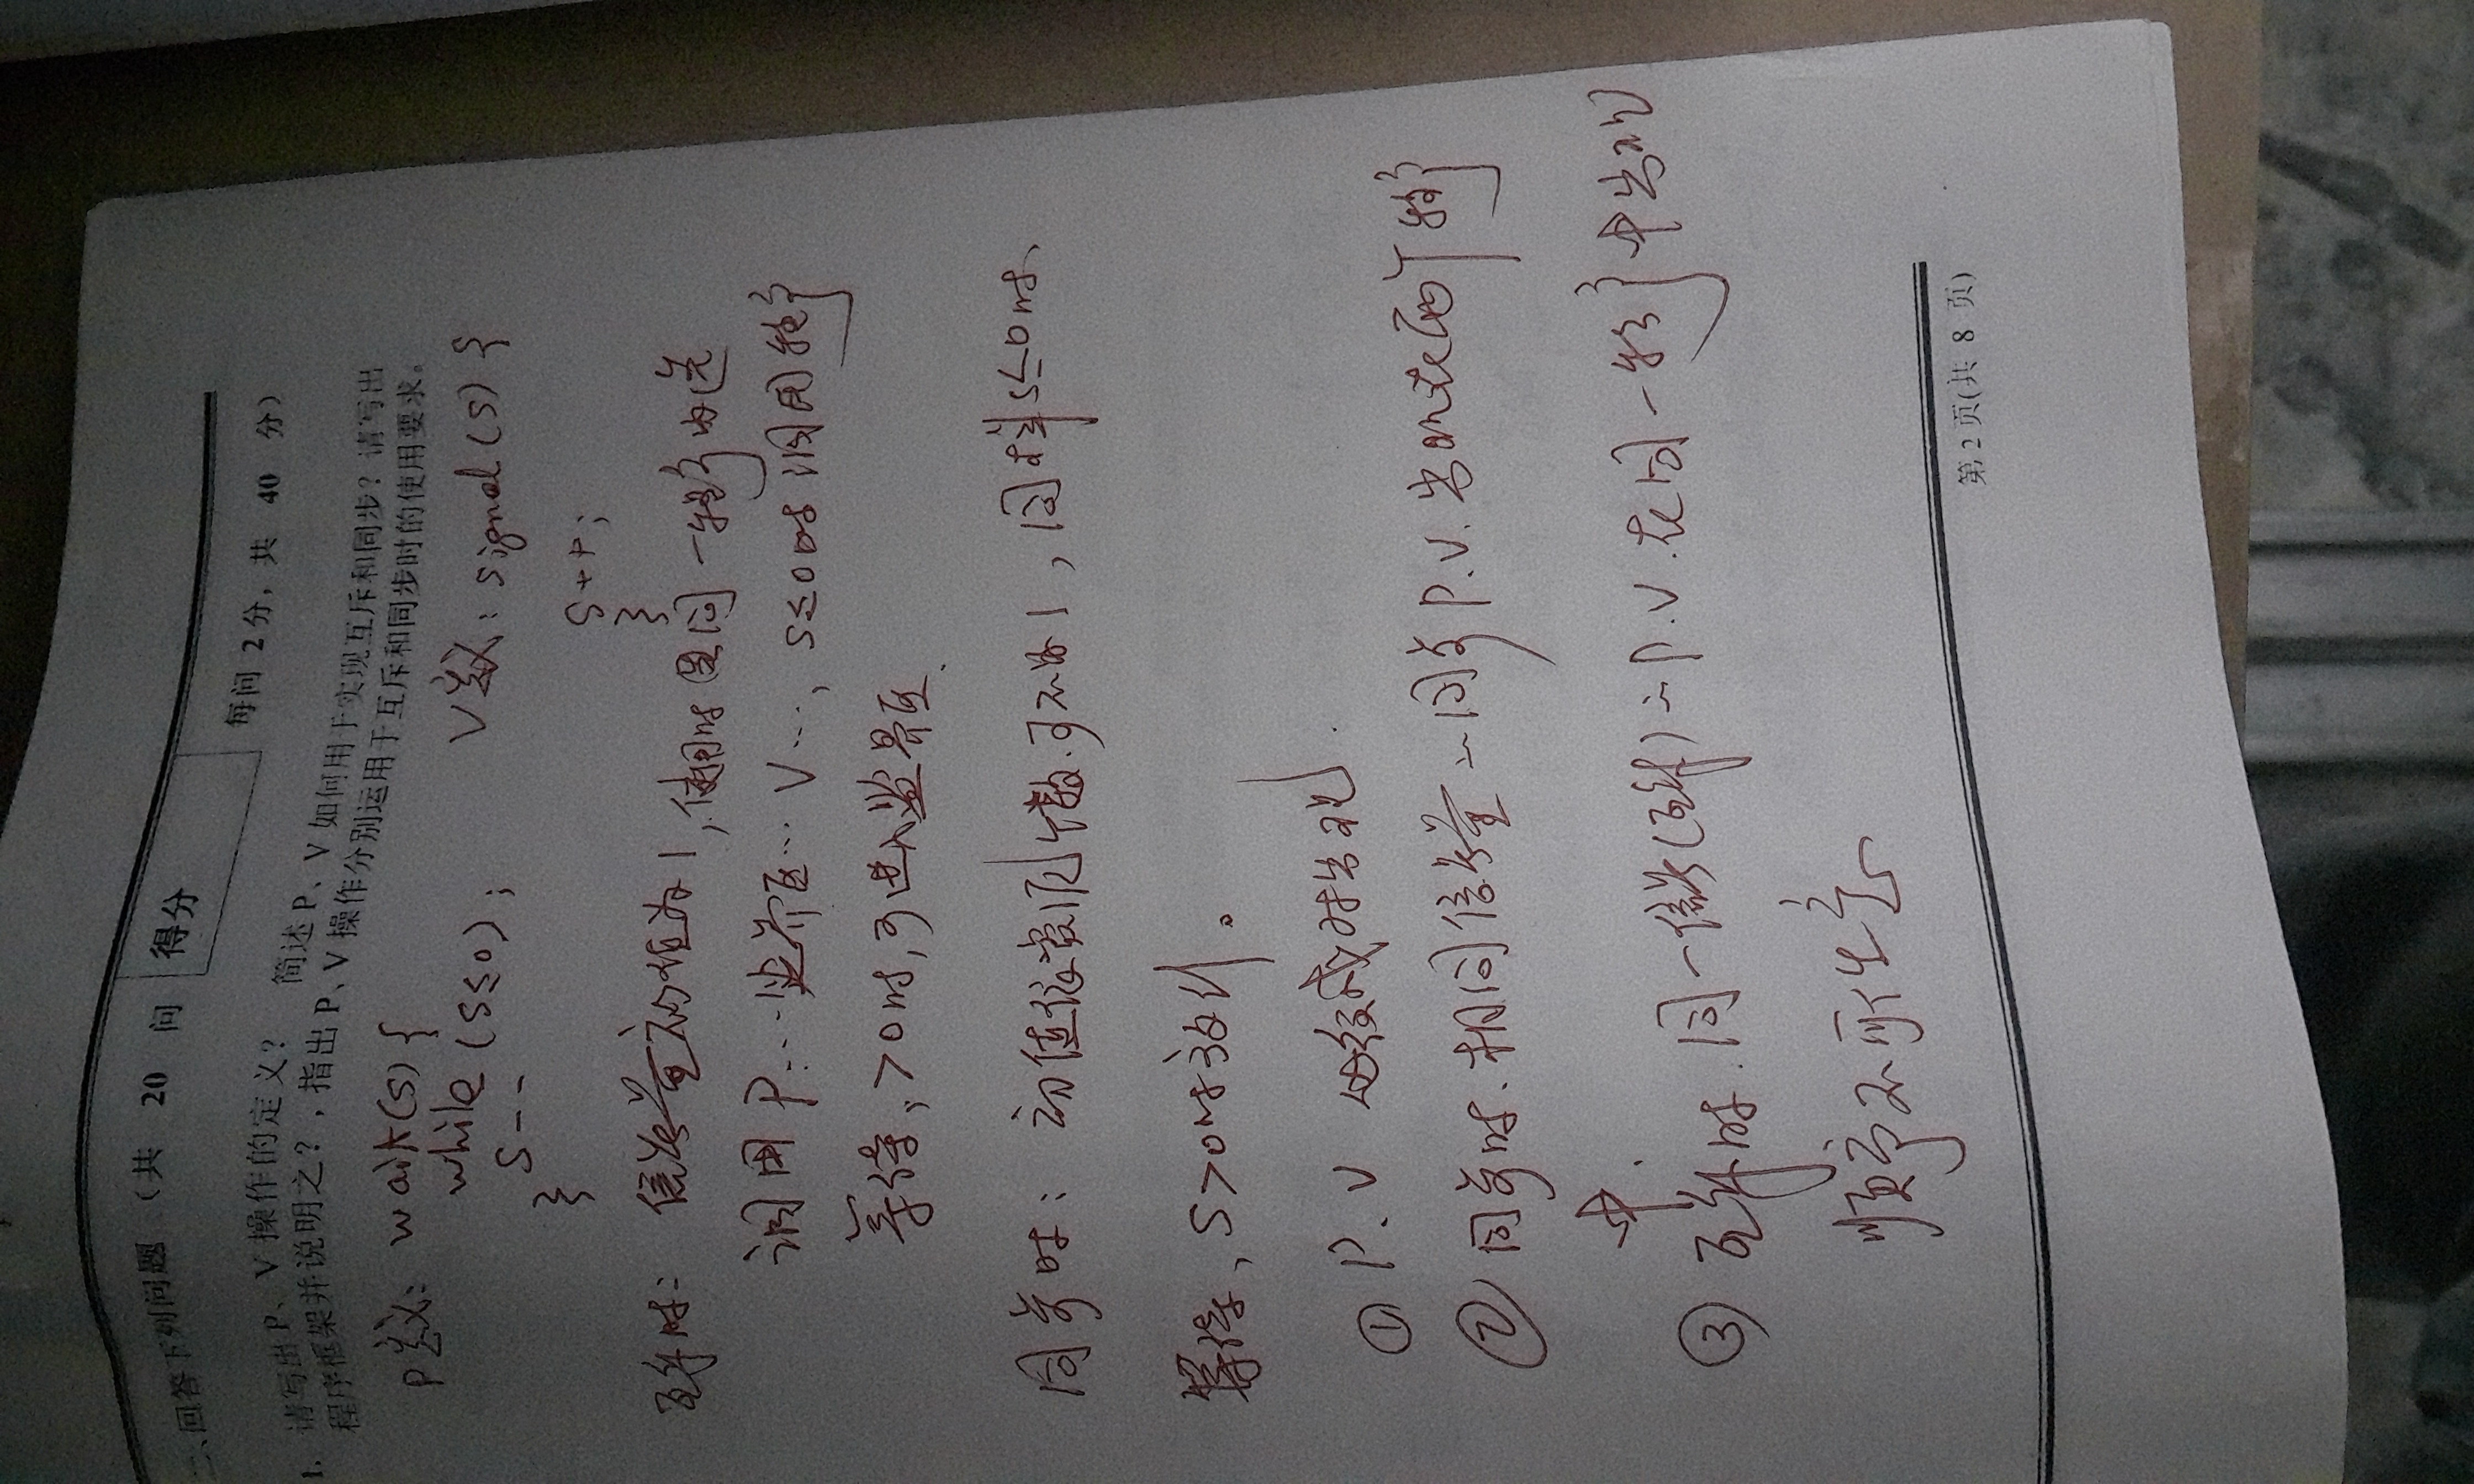 二、回答下列问题（共 20 问 得分 每问 2 分，共 40 分）
1. 请写出 P、V 操作的定义？ 简述 P、V 如何用于实现互斥和同步？请写出
程序框架并说明之？，指出 P、V 操作分别运用于互斥和同步时的使用要求。
P定义: wait(S) {
while (S≤0);
S--
}
V定义: signal(S) {
S++;
}
互斥时: 信号量初值为1,使用时 同一程序内先
调用 P…监界区… V…, S≤0时 调用程序
等待, >0时,可进入监界区.
同步时: 初值依资源个数.可不为1, 同样S≤0时、
等待, S>0时放行。
① P. V 必须成对出现.
② 同步时. 相同信号量 同步 P.V. 出现在两个程序
中.
③ 互斥时. 同一信号(互斥) P.V. 在同一程序中出现
顺序不可任意
第 2 页(共 8 页)